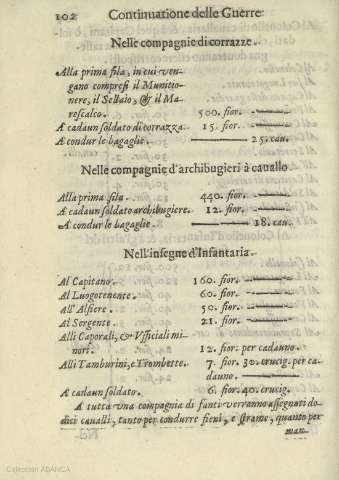 102 Continuatione delle Guerre
Nelle compagnie di corrazze.
Alla prima fila, in cui ven-
gano compresi il Munitio-
nere, il Sellaio, & il Ma-
rescalco. 500. fior.
A cadaun soldato di corrazza. 15. fior.
A condur le bagaglie. 25. cau.
Nelle compagnie d'archibugieri à cauallo
Alla prima fila. 440. fior.
A cadaun soldato archibugiere. 12. fior.
A condur le bagaglie. 18. cau.
Nell'insegne d'Infantaria.
Al Capitano. 160. fior.
Al Luogotenente. 60. fior.
All' Alfiere 50. fior.
Al Sergente. 21. fior.
Alli Caporali, & Vfficiali mi-
nori. 12. fior. per cadauno.
Alli Tamburini, e Trombette. 7. fior. 30. crucig. per ca-
dauno.
A cadaun soldato. 6. fior. 40. crucig.
A tutta vna compagnia di fanti verranno assegnati do-
dici caualli, tanto per condurre fieni, e strame, quanto per
man.
Colección ABANCA